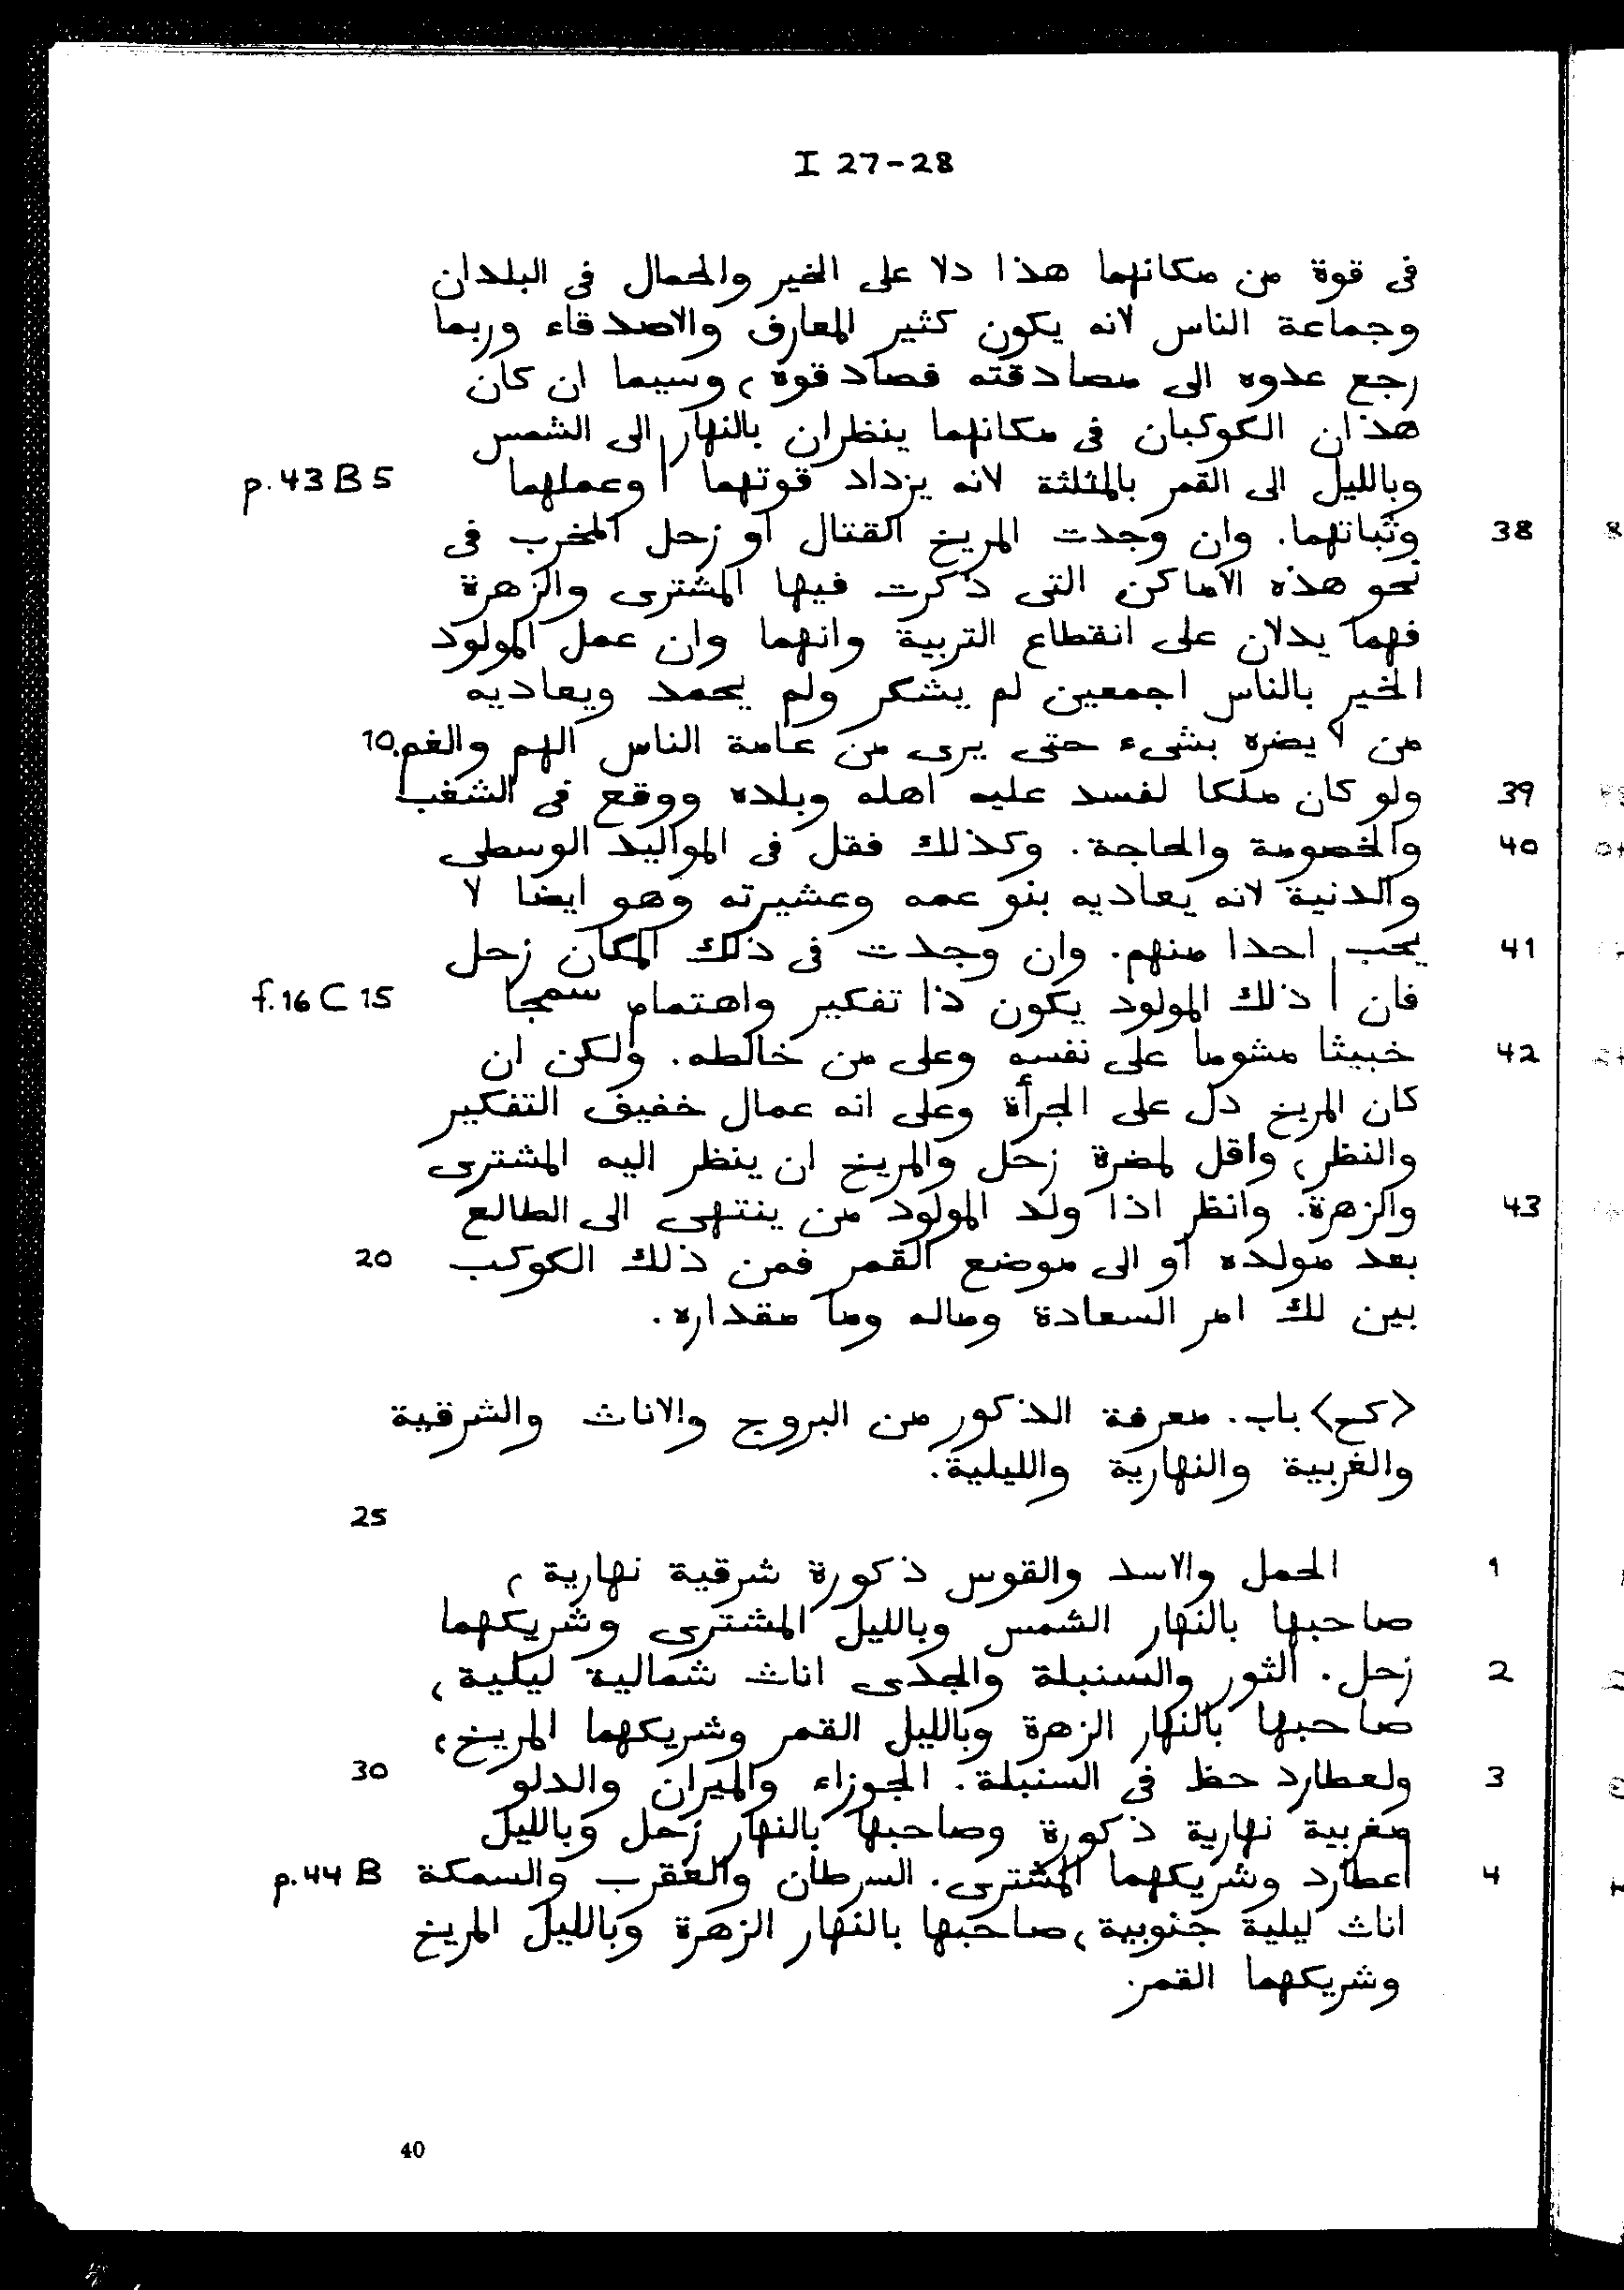 I 27-28
فى قوة من مكانهما هذا دلا على الخير والجمال فى البلدان
وجماعة الناس لانه يكون كثير المعارف والاصدقاء وربما
رجع عدوه الى مصادقته فصادقوه، وسيما ان كان
هذان الكوكبان فى مكانهما ينظران بالنهار الى الشمس
وبالليل الى القمر بالمثلثة لانه يزداد قوتهما | وعملهما p.43 B 5
38 وثباتهما. وان وجدت المريخ القتال او زحل المخرب فى
نحو هذه الاماكن التى ذكرت فيها المشترى والزهرة
فهما يدلان على انقطاع التربية وانهما وان عمل المولود
الخير بالناس اجمعين لم يشكر ولم يحمد ويعاديه
من لا يضره بشىء حتى يرى من عامة الناس الهم والغم. 10
39 ولو كان ملكا لفسد عليه اهله وبلده ووقع فى الشغب
40 والخصومة والحاجة. وكذلك فقل فى المواليد الوسطى
والدنية لانه يعاديه بنو عمه وعشيرته وهو ايضا لا
41 يحب احدا منهم. وان وجدت فى ذلك المكان زحل
فان | ذلك المولود يكون ذا تفكير واهتمام سمجا f.16 C 15
42 خبيثا مشوما على نفسه وعلى من خالطه. ولكن ان
كان المريخ دل على الجرأة وعلى انه عمال خفيف التفكير
والنظر، واقل لمضرة زحل والمريخ ان ينظر اليه المشترى
43 والزهرة. وانظر اذا ولد المولود من ينتهى الى الطالع
بعد مولده او الى موضع القمر فمن ذلك الكوكب 20
بين لك امر السعادة وماله وما مقداره.
<كح> باب. معرفة الذكور من البروج والاناث والشرقية
والغربية والنهارية والليلية.
25
1 الحمل والاسد والقوس ذكورة شرقية نهارية،
صاحبها بالنهار الشمس وبالليل المشترى وشريكهما
2 زحل. الثور والسنبلة والجدى اناث شمالية ليلية،
صاحبها بالنهار الزهرة وبالليل القمر وشريكهما المريخ،
3 ولعطارد حظ فى السنبلة. الجوزاء والميزان والدلو 30
مغربية نهارية ذكورة وصاحبها بالنهار زحل وبالليل
4 | عطارد وشريكهما المشترى. السرطان والعقرب والسمكة p.44 B
اناث ليلية جنوبية، صاحبها بالنهار الزهرة وبالليل المريخ
وشريكهما القمر.
40